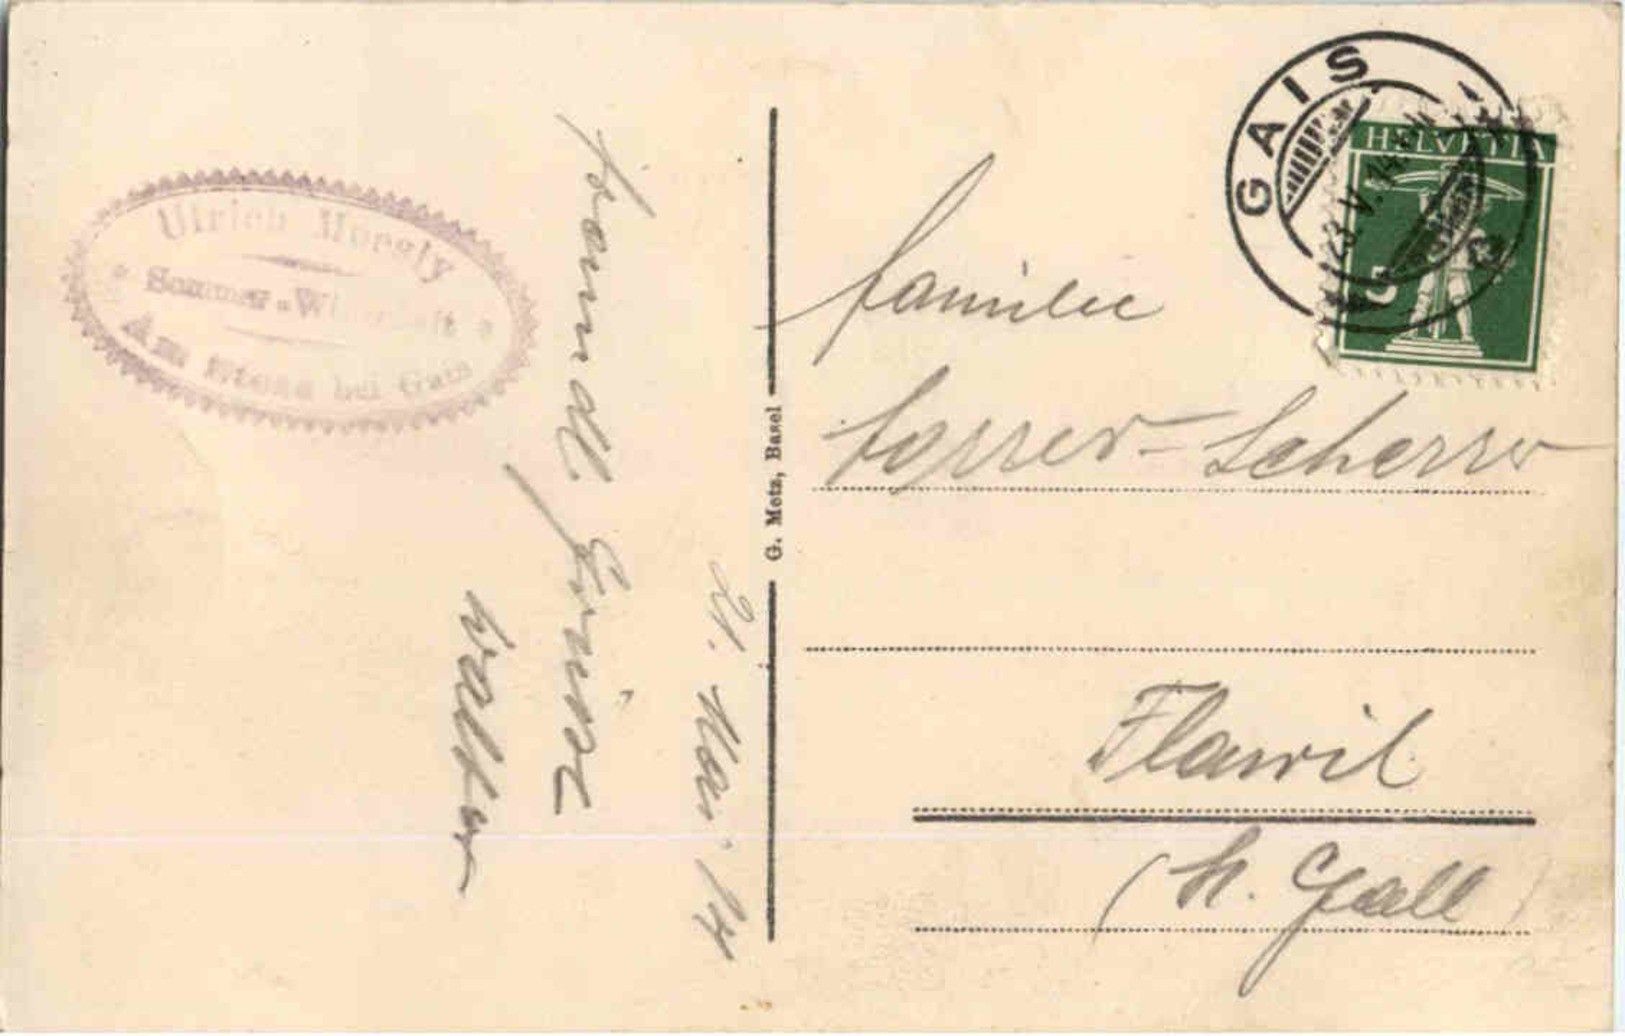 Ulrich
Sommer-Wirtschaft
Am Stoss bei Gais
21. Mai 14
Freundl. Grüsse
Walter
G. Metz, Basel
GAIS
23. V. 14
HELVETIA
5
Familie
Scherrer
Flawil
(St. Gall)